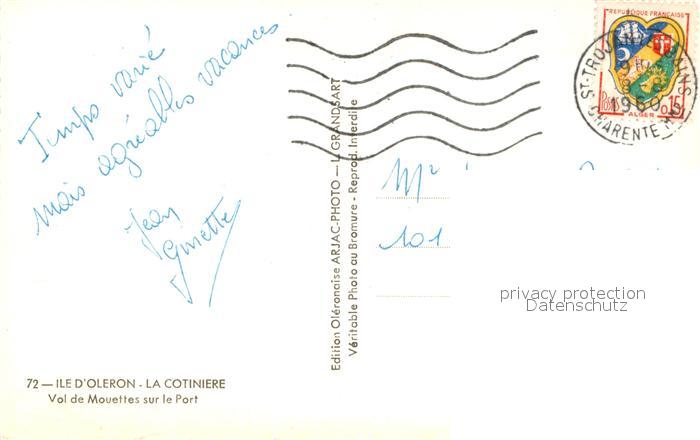 Temps varié
mais agréables vacances
Jean
Ginette
72 — ILE D'OLERON - LA COTINIERE
Vol de Mouettes sur le Port
Edition Oléronaise ARJAC-PHOTO — L. GRANDSART
Véritable Photo au Bromure - Reprod. Interdite
REPUBLIQUE FRANÇAISE
Postes 0,15
ALGER
ST-TROJAN
1960
CHARENTE
Mr
101
privacy protection
Datenschutz